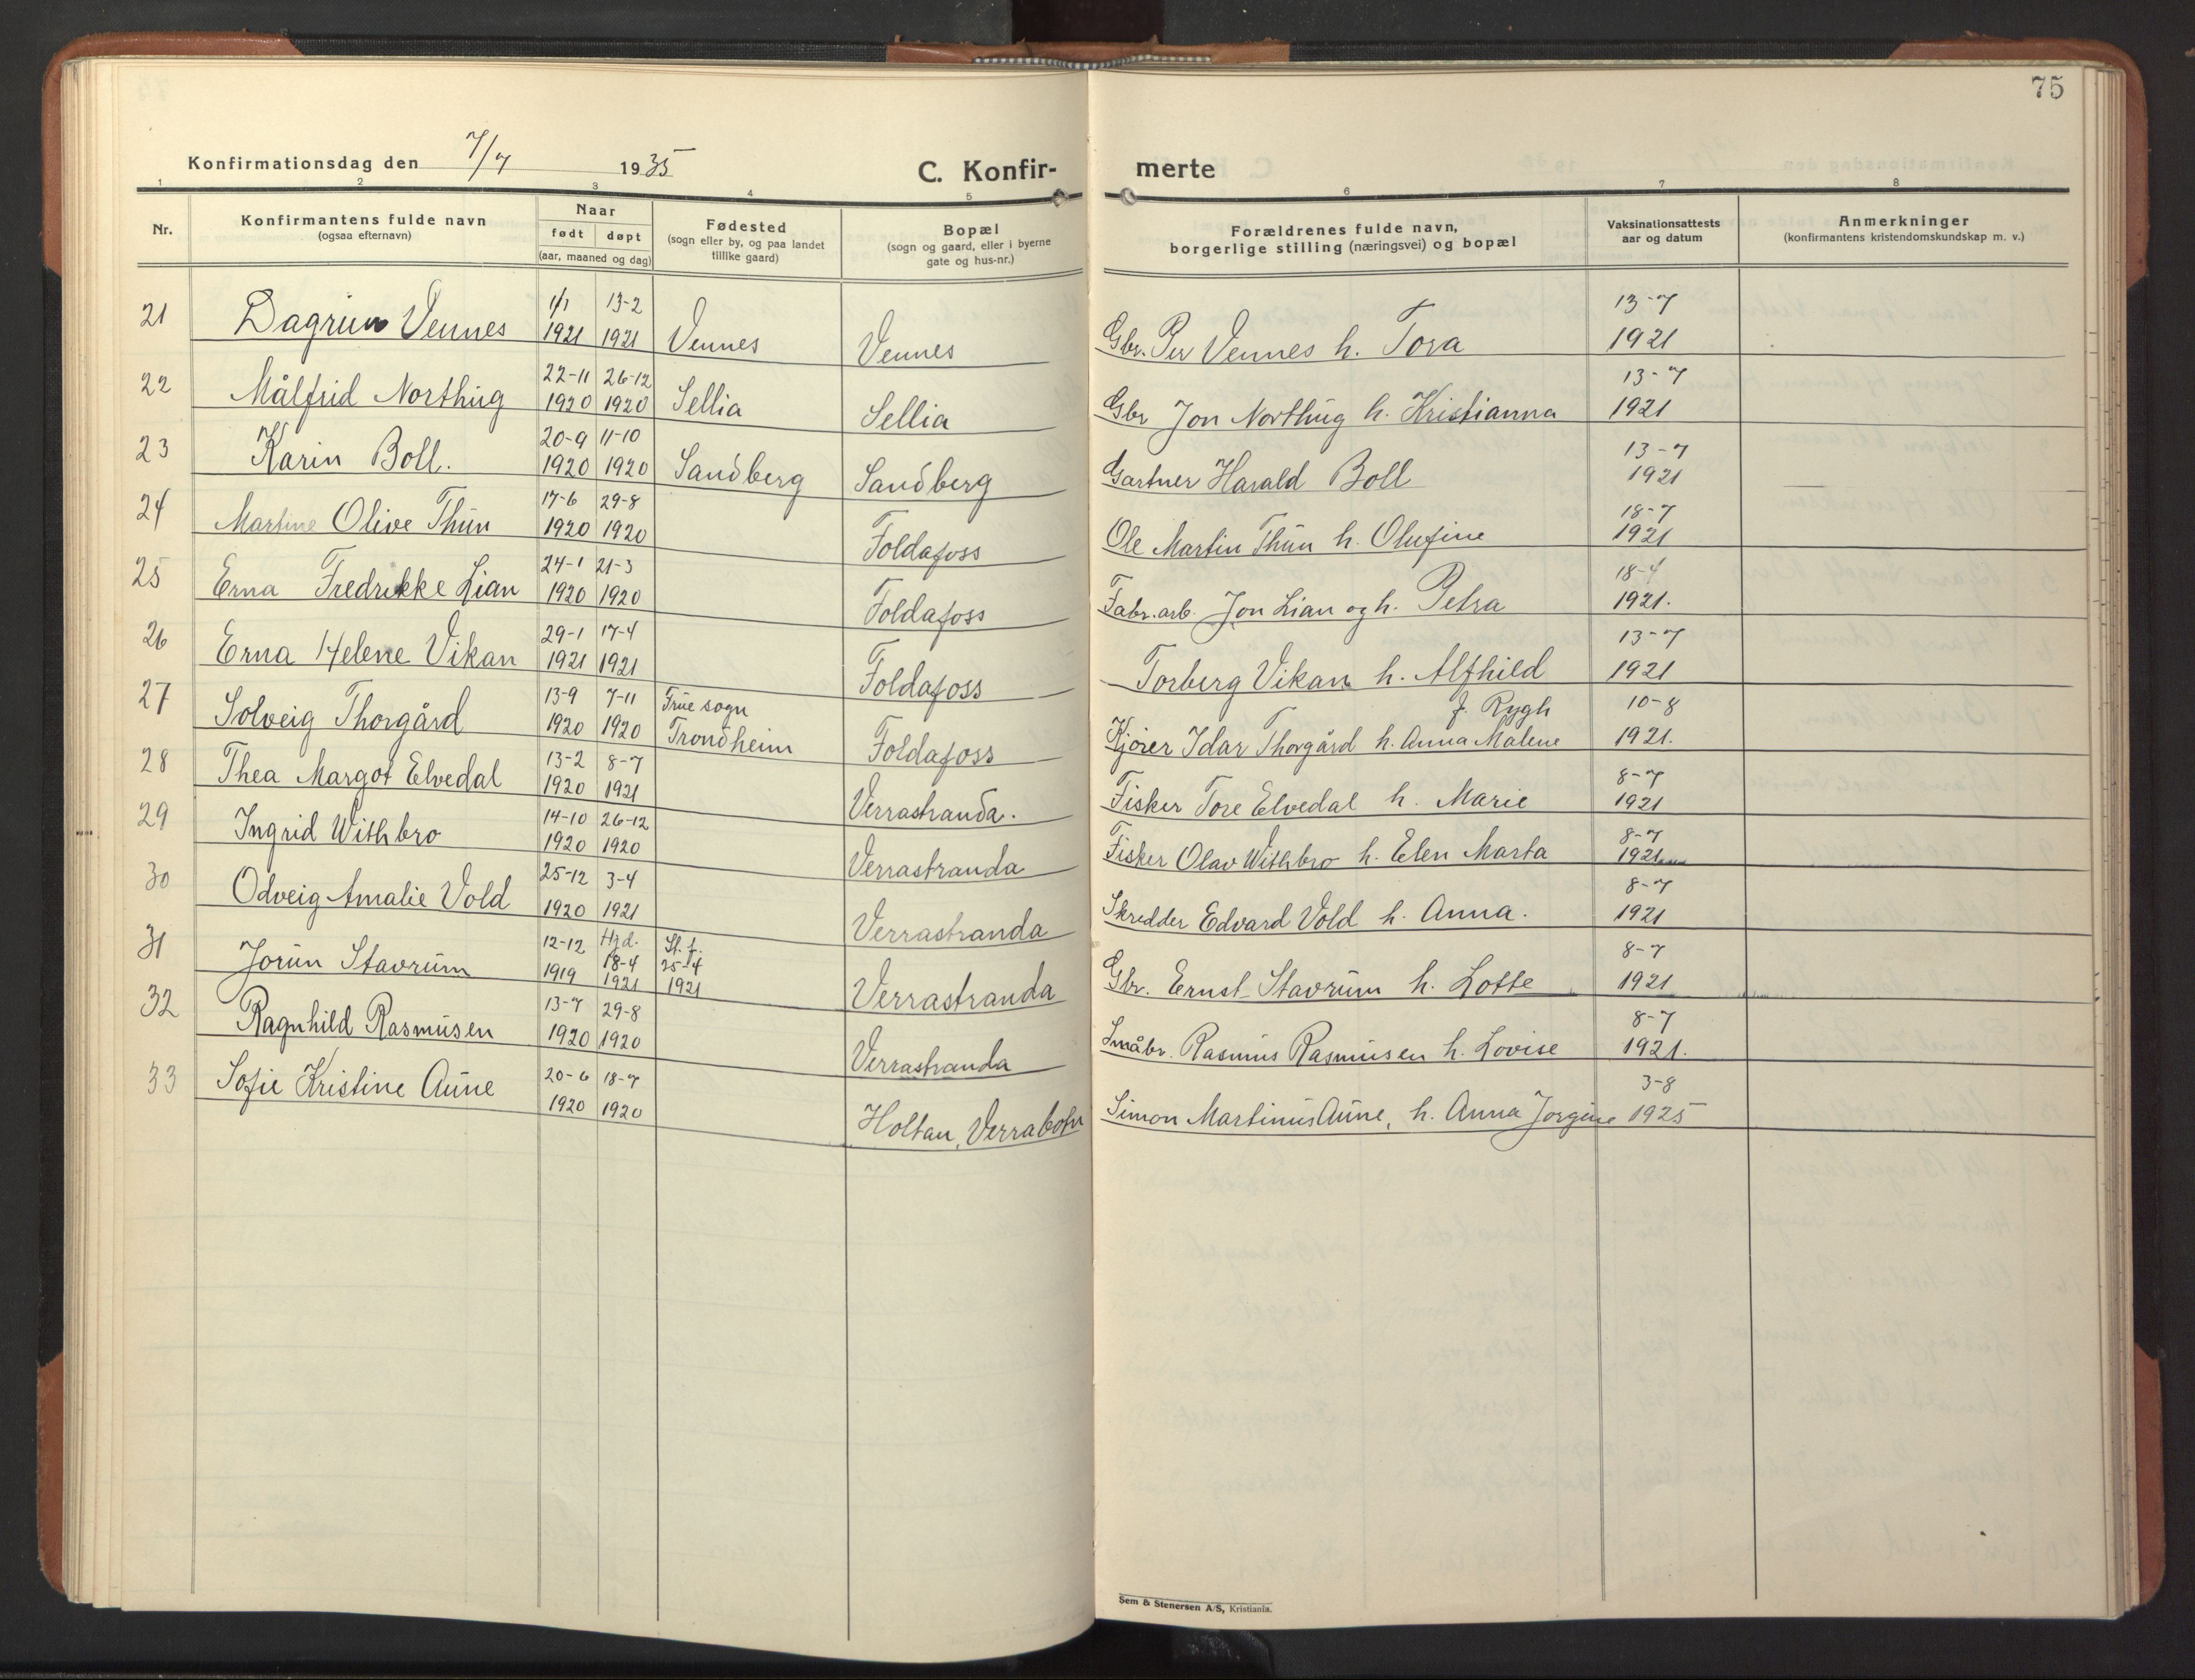 75
Konfirmationsdag den 7/7 1935
C. Konfir- merte
1 2 3 4 5 6 7 8
Nr.
Konfirmantens fulde navn
(ogsaa efternavn)
Naar
født døpt
(aar, maaned og dag)
Fødested
(sogn eller by, og paa landet
tillike gaard)
Bopæl
(sogn og gaard, eller i byerne
gate og hus-nr.)
Forældrenes fulde navn,
borgerlige stilling (næringsvei) og bopæl
Vaksinationsattests
aar og datum
Anmerkninger
(konfirmantens kristendomskundskap m. v.)
21 Dagrun Vennes 1/1 1921 13-2 1921 Vennes Vennes Gbr. Per Vennes h. Tora 13-7 1921
22 Målfrid Northug 22-11 1920 26-12 1920 Sellia Sellia Gbr Jon Northug h. Kristianna 13-7 1921
23 Karin Boll. 20-9 1920 11-10 1920 Sandberg Sandberg Gartner Harald Boll 13-7 1921
24 Martine Olive Thun 17-6 1920 29-8 1920 Foldafoss Ole Martin Thun h. Olufine 18-7 1921
25 Erna Fredrikke Lian 24-1 1920 21-3 1920 Foldafoss Fabr.arb. Jon Lian og h. Petra 18-4 1921.
26 Erna Helene Vikan 29-1 1921 17-4 1921 Foldafoss Torberg Vikan h. Alfhild f. Rygh 13-7 1921
27 Solveig Thorgård 13-9 1920 7-11 1920 Frue sogn Trondheim Foldafoss Kjører Idar Thorgård h. Anna Malene 10-8 1921.
28 Thea Margot Elvedal 13-2 1920 8-7 1921 Verrastranda. Fisker Tore Elvedal h. Marie 8-7 1921
29 Ingrid Withbro 14-10 1920 26-12 1920 Verrastranda Fisker Olav Withbro h. Elen Marta 8-7 1921
30 Odveig Amalie Vold 25-12 1920 3-4 1921 Verrastranda Skredder Edvard Vold h. Anna. 8-7 1921
31 Jorun Stavrum 12-12 1919 Hjd. 18-4 1921 St. f. 25-4 1921 Verrastranda Gbr. Ernst Stavrum h. Lotte 8-7 1921
32 Ragnhild Rasmusen 13-7 1920 29-8 1920 Verrastranda Småbr. Rasmus Rasmusen h. Lovise 8-7 1921.
33 Sofie Kristine Aune 20-6 1920 18-7 1920 Holtan, Verrabotn Simon Martinus Aune, h. Anna Jorgine 3-8 1925
Sem & Stenersen A/S, Kristiania.